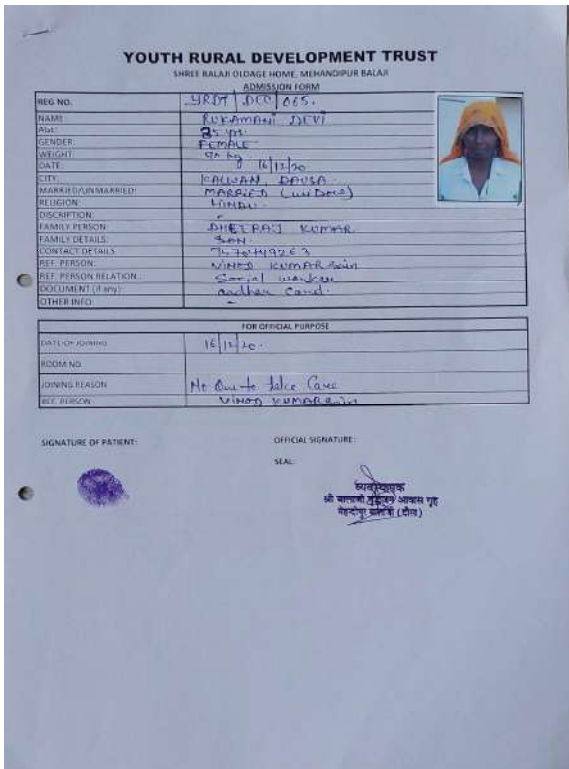 YOUTH RURAL DEVELOPMENT TRUST
SHREE BALAJI OLDAGE HOME, MEHANDIPUR BALAJI
ADMISSION FORM
REG NO. YRDT/DCC/065.
NAME: RUKAMANI DEVI
AGE: 85 yrs.
GENDER: FEMALE
WEIGHT: kg
DATE: 16/12/20
CITY: KALWAN, DAUSA.
MARRIED/UNMARRIED: MARRIED
RELIGION: HINDU.
DISCRIPTION:
FAMILY PERSON: DHEERAJ KUMAR
FAMILY DETAILS: SON.
CONTACT DETAILS
REF. PERSON: VINOD KUMAR Sain
REF. PERSON RELATION.: Social worker
DOCUMENT (if any): aadhar Card.
OTHER INFO: -
FOR OFFICIAL PURPOSE
DATE OF JOINING 16/12/20.
ROOM NO
JOINING REASON No One to take Care
REF. PERSON VINOD KUMAR Sain
SIGNATURE OF PATIENT: OFFICIAL SIGNATURE:
SEAL:
व्यवस्थापक
श्री बालाजी वृद्धजन आवास गृह
मेहन्दीपुर बालाजी (दौसा)